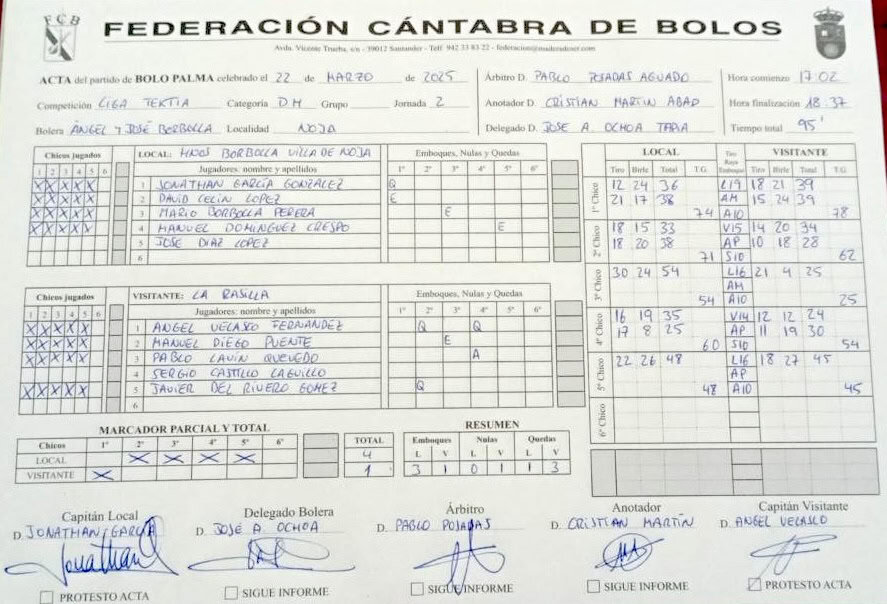 FCB
FEDERACIÓN CÁNTABRA DE BOLOS
Avda. Vicente Trueba, s/n - 39012 Santander - Telf: 942 33 83 22 - federacion@maderadeser.com
ACTA del partido de BOLO PALMA celebrado el 22 de MARZO de 2025 Árbitro D. PABLO POSADAS AGUADO Hora comienzo 17 02
Competición LIGA TEKTIA Categoría DM Grupo Jornada 2 Anotador D. CRISTIAN MARTIN ABAD Hora finalización 18.37
Bolera ÁNGEL Y JOSÉ BORBOLLA Localidad NOJA Delegado D. JOSE A. OCHOA TAPIA Tiempo total 95'
Chicos jugados LOCAL: HNOS BORBOLLA VILLA DE NOJA Emboques, Nulas y Quedas
1 2 3 4 5 6 Jugadores: nombre y apellidos 1º 2º 3º 4º 5º 6º
X X X X X 1 JONATHAN GARCÍA GONZALEZ Q
X X X X X 2 DAVID CELIN LOPEZ E
X X X X X 3 MARIO BORBOLLA PERERA E
X X X X X 4 MANUEL DOMINGUEZ CRESPO E
5 JOSE DIAZ LOPEZ
6
Chicos jugados VISITANTE: LA RASILLA Emboques, Nulas y Quedas
1 2 3 4 5 6 Jugadores: nombre y apellidos 1º 2º 3º 4º 5º 6º
X X X X X 1 ANGEL VELASCO FERNANDEZ Q Q
X X X X X 2 MANUEL DIEGO PUENTE E
X X X X X 3 PABLO LAVIN QUEVEDO A
4 SERGIO CASTILLO LAGUILLO
X X X X X 5 JAVIER DEL RIVERO GOMEZ Q
6
LOCAL Tiro Raya Emboque VISITANTE
Tiro Birle Total T.G Tiro Birle Total T.G
1º Chico 12 24 36 L19 18 21 39
21 17 38 AM 15 24 39
74 A10 78
2º Chico 18 15 33 V15 14 20 34
18 20 38 AP 10 18 28
71 S10 62
3º Chico 30 24 54 L16 21 4 25
AM
54 A10 25
4º Chico 16 19 35 V14 12 12 24
17 8 25 AP 11 19 30
60 S10 54
5º Chico 22 26 48 L16 18 27 45
AP
48 A10 45
6º Chico
MARCADOR PARCIAL Y TOTAL
Chicos 1º 2º 3º 4º 5º 6º TOTAL
LOCAL X X X X 4
VISITANTE X 1
RESUMEN
Emboques Nulas Quedas
L V L V L V
3 1 0 1 1 3
Capitán Local Delegado Bolera Árbitro Anotador Capitán Visitante
D. JONATHAN GARCÍA D. JOSÉ A. OCHOA D. PABLO POSADAS D. CRISTIAN MARTÍN D. ANGEL VELASCO
Jonathan
PROTESTO ACTA SIGUE INFORME SIGUE INFORME SIGUE INFORME PROTESTO ACTA